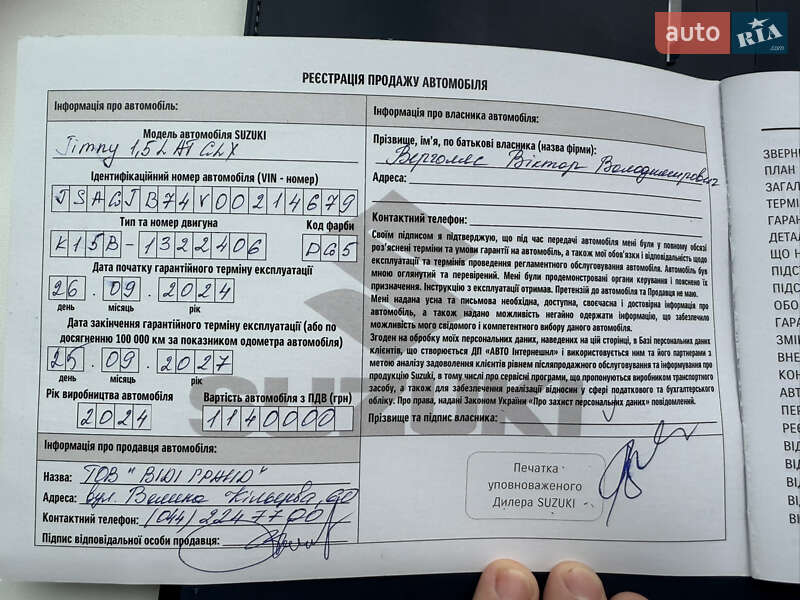 auto RIA.com
РЕЄСТРАЦІЯ ПРОДАЖУ АВТОМОБІЛЯ
Інформація про автомобіль:
Модель автомобіля SUZUKI
Jimny 1,5L AT GLX
Ідентифікаційний номер автомобіля (VIN - номер)
JSAGJB74V00214679
Тип та номер двигуна
Код фарби
K15B-1322406
DG5
Дата початку гарантійного терміну експлуатації
26.09.2024
день місяць рік
Дата закінчення гарантійного терміну експлуатації (або по
досягненню 100 000 км за показником одометра автомобіля)
25.09.2027
день місяць рік
Рік виробництва автомобіля
Вартість автомобіля з ПДВ (грн)
2024
1140000
Інформація про продавця автомобіля:
Назва: ТОВ "ВІДІ ГРАНД"
Адреса: вул. Велика Кільцева,
Контактний телефон: (044) 224 77 00
Підпис відповідальної особи продавця:
Інформація про власника автомобіля:
Прізвище, ім'я, по батькові власника (назва фірми):
Віктор Володимирович
Адреса:
Контактний телефон:
Своїм підписом я підтверджую, що під час передачі автомобіля мені були у повному обсязі
роз'яснені терміни та умови гарантії на автомобіль, а також мої обов'язки і відповідальність щодо
експлуатації та термінів проведення регламентного обслуговування автомобіля. Автомобіль був
мною оглянутий та перевірений. Мені були продемонстровані органи керування і пояснено їх
призначення. Інструкцію з експлуатації отримав. Претензій до автомобіля та Продавця не маю.
Мені надана усна та письмова необхідна, доступна, своєчасна і достовірна інформація про
автомобіль, а також надано можливість негайно одержати інформацію, що забезпечило
можливість мого свідомого і компетентного вибору даного автомобіля.
Згоден на обробку моїх персональних даних, наведених на цій сторінці, в Базі персональних даних
клієнтів, що створюється ДП «АВТО Інтернешнл» і використовується ним та його партнерами з
метою аналізу задоволення клієнтів рівнем післяпродажного обслуговування та інформування про
продукцію Suzuki, в тому числі про сервісні програми, що пропонуються виробником транспортного
засобу, а також для забезпечення реалізації відносин у сфері податкового та бухгалтерського
обліку. Про права, надані Законом України «Про захист персональних даних» повідомлений.
Прізвище та підпис власника:
Печатка
уповноваженого
Дилера SUZUKI
SUZUKI